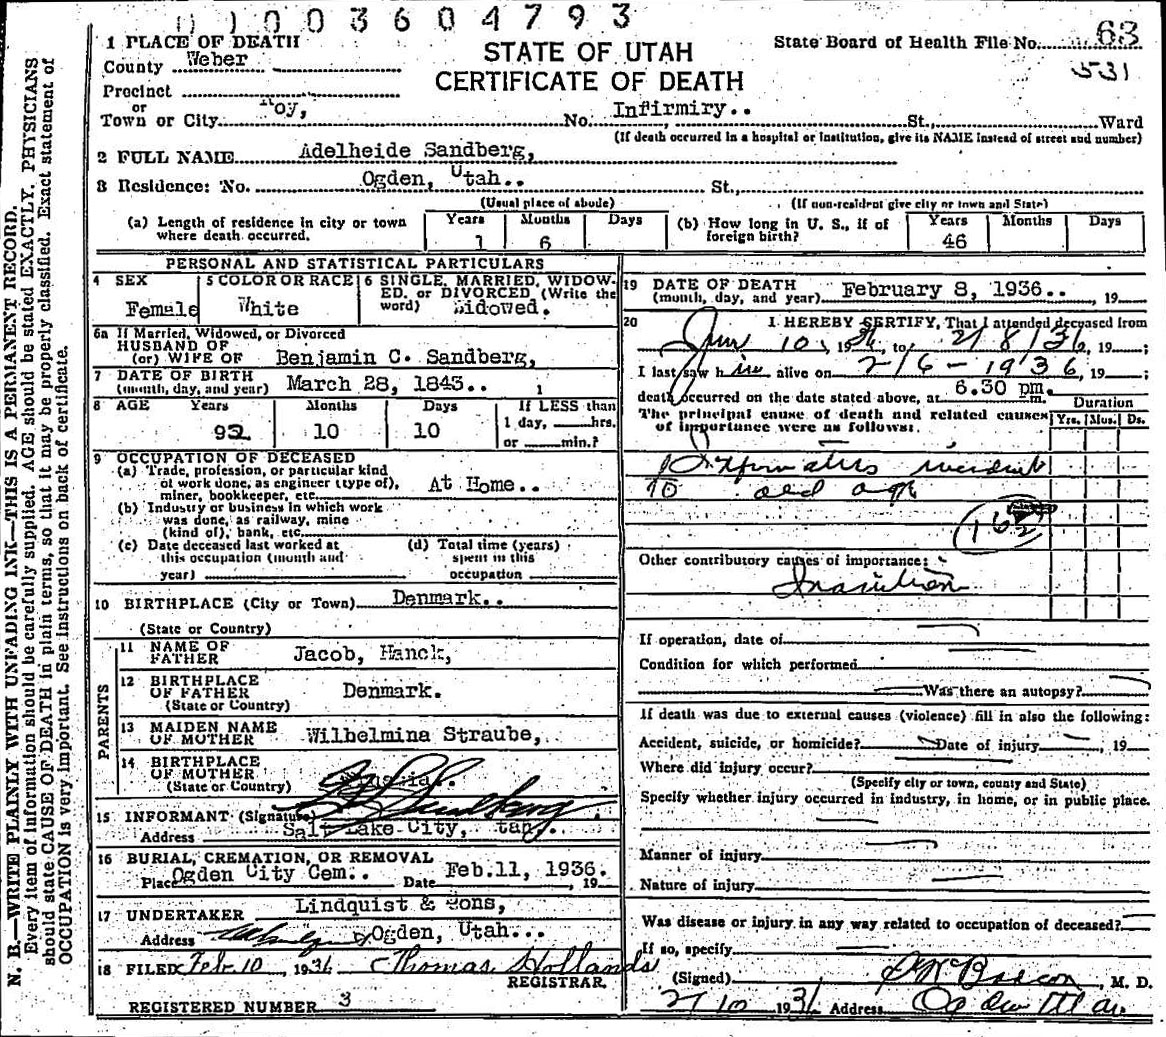 01003604793
1 PLACE OF DEATH
STATE OF UTAH
CERTIFICATE OF DEATH
State Board of Health File No. 63
531
County Weber
Precinct
or
Town or City Roy, No. Infirmiry.. St., Ward
(If death occurred in a hospital or institution, give its NAME instead of street and number)
2 FULL NAME Adelheide Sandberg,
3 Residence: No. Ogden, Utah.. St.,
(Usual place of abode) (If non-resident give city or town and State)
(a) Length of residence in city or town where death occurred. Years 1 Months 6 Days
(b) How long in U. S., if of foreign birth? Years 46 Months Days
PERSONAL AND STATISTICAL PARTICULARS
4 SEX Female
5 COLOR OR RACE White
6 SINGLE, MARRIED, WIDOWED, or DIVORCED (Write the word) Widowed.
6a If Married, Widowed, or Divorced
HUSBAND OF
(or) WIFE OF Benjamin C. Sandberg,
7 DATE OF BIRTH
(month, day, and year) March 28, 1843.. 1
8 AGE Years 92 Months 10 Days 10 If LESS than
1 day, hrs.
or min.?
9 OCCUPATION OF DECEASED
(a) Trade, profession, or particular kind
of work done, as engineer (type of),
miner, bookkeeper, etc. At Home..
(b) Industry or business in which work
was done, as railway, mine
(kind of), bank, etc.
(c) Date deceased last worked at
this occupation (month and
year)
(d) Total time (years)
spent in this
occupation
10 BIRTHPLACE (City or Town) Denmark..
(State or Country)
PARENTS
11 NAME OF
FATHER Jacob, Hanck,
12 BIRTHPLACE
OF FATHER Denmark.
(State or Country)
13 MAIDEN NAME
OF MOTHER Wilhelmina Straube,
14 BIRTHPLACE
OF MOTHER
(State or Country)
15 INFORMANT (Signature) Sandberg
Address Salt Lake City, tah..
16 BURIAL, CREMATION, OR REMOVAL
Place Ogden City Cem.. Date Feb.11, 1936. , 19
17 UNDERTAKER Lindquist & Sons,
Address Ogden, Utah...
18 FILED Feb 10, 1936 Thomas Hollands
REGISTRAR.
REGISTERED NUMBER 3
19 DATE OF DEATH
(month, day, and year) February 8, 1936.. , 19
20 I HEREBY CERTIFY, That I attended deceased from
10, 1936, to 2/8/36, 19 ;
I last saw h alive on 2/6-1936, 19 ;
death occurred on the date stated above, at 6.30 pm. m.
The principal cause of death and related causes
of importance were as follows:
Duration
Yrs. Mos. Ds.
incident
to old age
162
Other contributory causes of importance:
Inanition
If operation, date of
Condition for which performed
Was there an autopsy?
If death was due to external causes (violence) fill in also the following:
Accident, suicide, or homicide? Date of injury , 19
Where did injury occur?
(Specify city or town, county and State)
Specify whether injury occurred in industry, in home, or in public place.
Manner of injury
Nature of injury
Was disease or injury in any way related to occupation of deceased?
If so, specify
(Signed) , M. D.
2/10 1936 Address Ogden Utah.
N. B.—WRITE PLAINLY WITH UNFADING INK—THIS IS A PERMANENT RECORD.
Every item of information should be carefully supplied. AGE should be stated EXACTLY. PHYSICIANS
should state CAUSE OF DEATH in plain terms, so that it may be properly classified. Exact statement of
OCCUPATION is very important. See instructions on back of certificate.